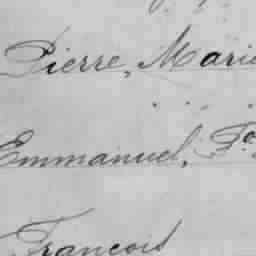 Pierre, Marie
Emmanuel,
François